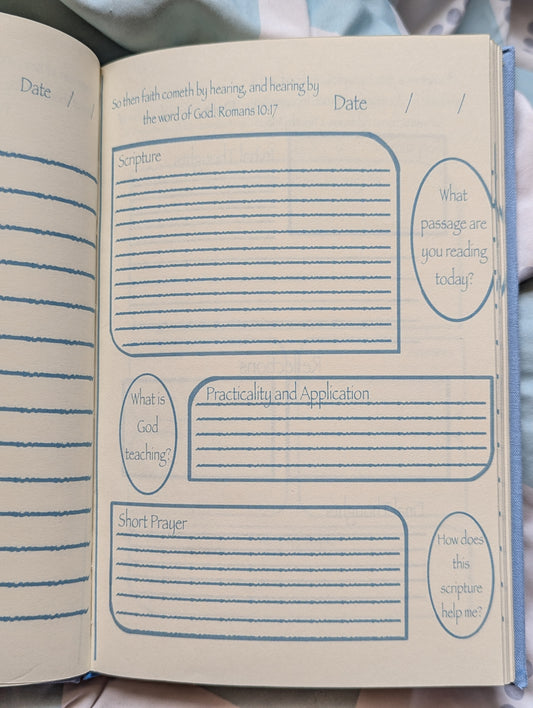 Date / /
So then faith cometh by hearing, and hearing by
the word of God. Romans 10:17
Date / /
Scripture
What
passage are
you reading
today?
What is
God
teaching?
Practicality and Application
Short Prayer
How does
this
scripture
help me?